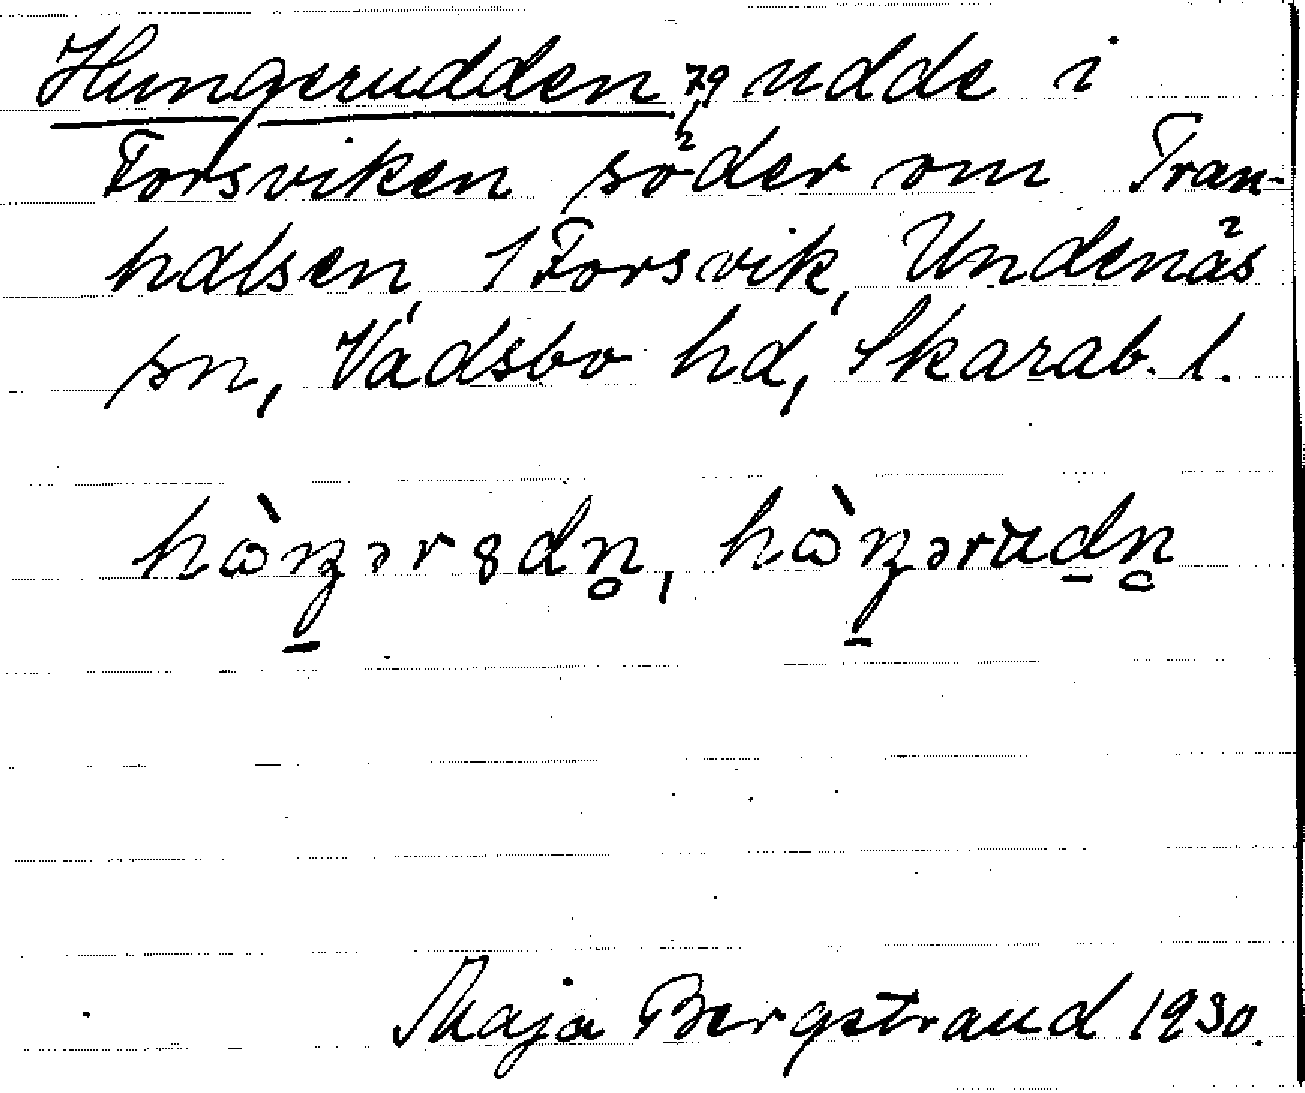 Hungerudden, 79 udde i
Forsviken söder om Tran-
halsen, 1 Forsvik, Undenäs
sn, Vadsbo hd, Skarab. l.
Maja Bergstrand 1930.